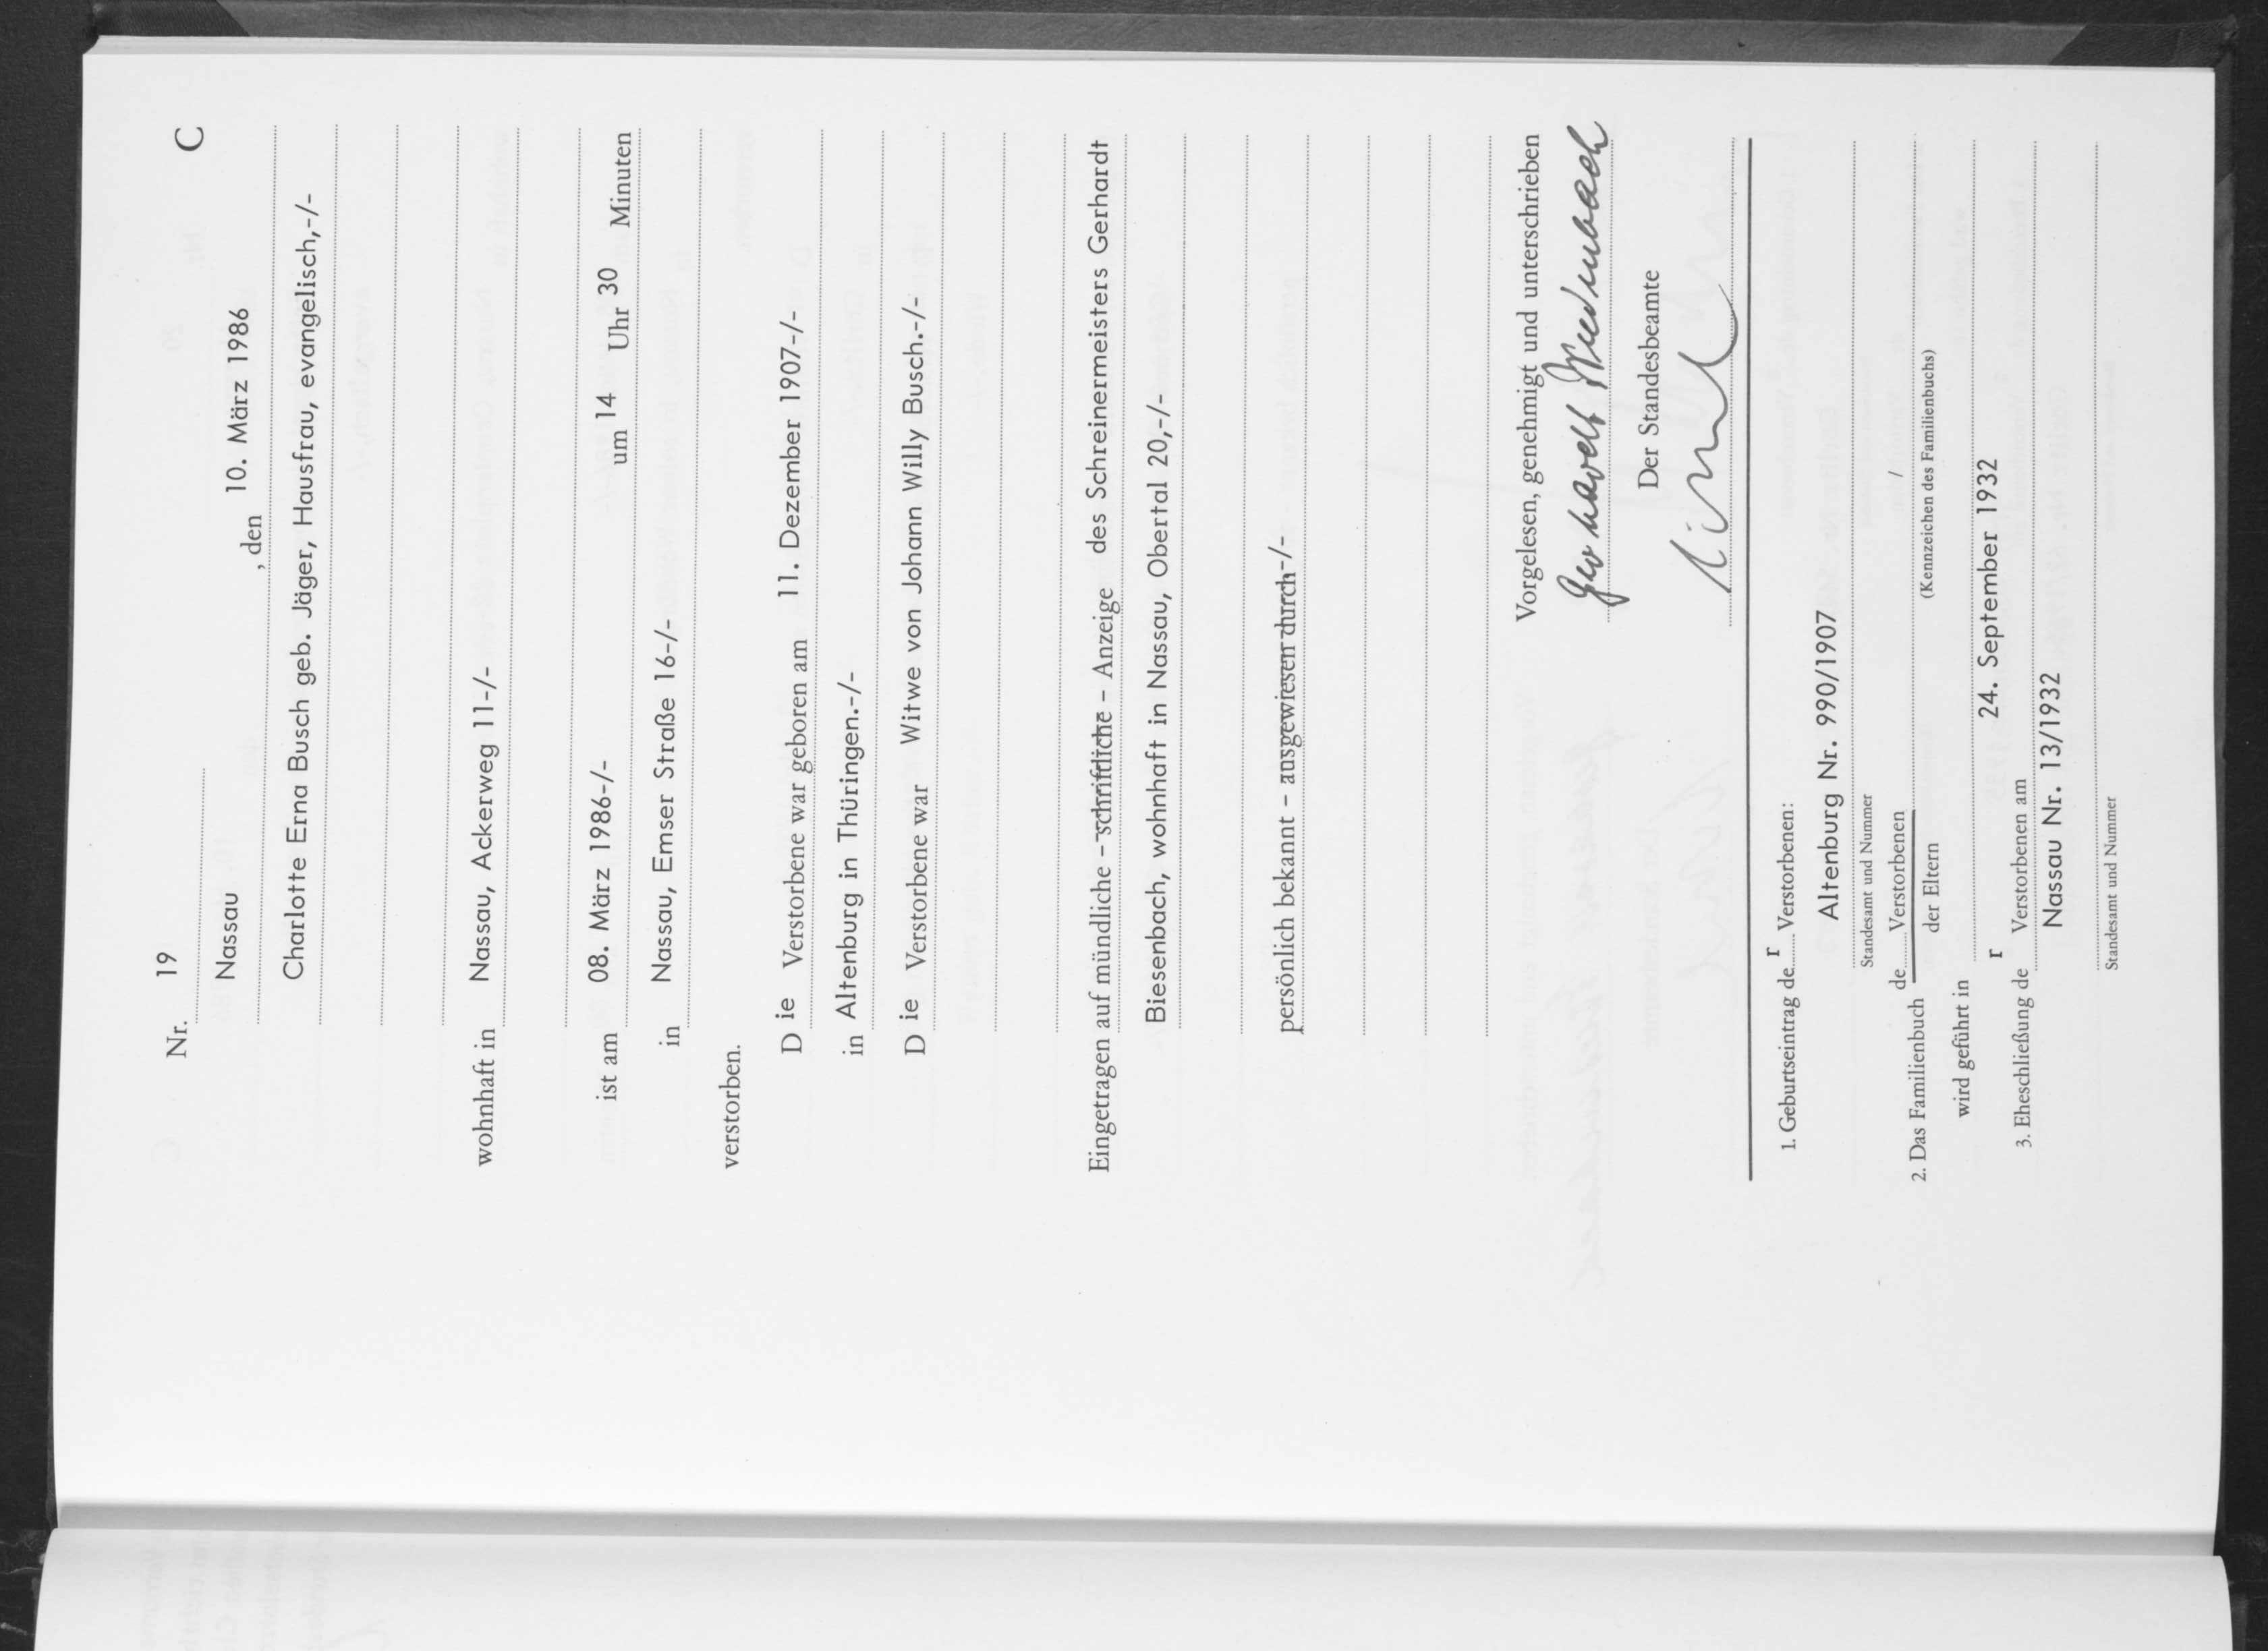 C
Nr. 19
Nassau , den 10. März 1986
Charlotte Erna Busch geb. Jäger, Hausfrau, evangelisch,-/-
wohnhaft in Nassau, Ackerweg 11-/-
ist am 08. März 1986-/- um 14 Uhr 30 Minuten
in Nassau, Emser Straße 16-/-
verstorben.
D ie Verstorbene war geboren am 11. Dezember 1907-/-
in Altenburg in Thüringen.-/-
D ie Verstorbene war Witwe von Johann Willy Busch.-/-
Eingetragen auf mündliche – schriftliche – Anzeige des Schreinermeisters Gerhardt
Biesenbach, wohnhaft in Nassau, Obertal 20,-/-
persönlich bekannt – ausgewiesen durch-/-
Vorgelesen, genehmigt und unterschrieben
Der Standesbeamte
1. Geburtseintrag de r Verstorbenen:
Altenburg Nr. 990/1907
Standesamt und Nummer
2. Das Familienbuch de Verstorbenen /
der Eltern (Kennzeichen des Familienbuchs)
wird geführt in
3. Eheschließung de r Verstorbenen am 24. September 1932
Nassau Nr. 13/1932
Standesamt und Nummer